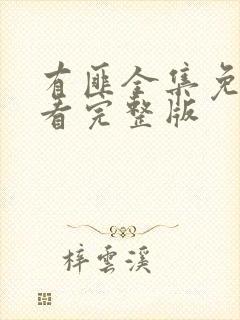 有匪全集免
看完整版
梓雲溪